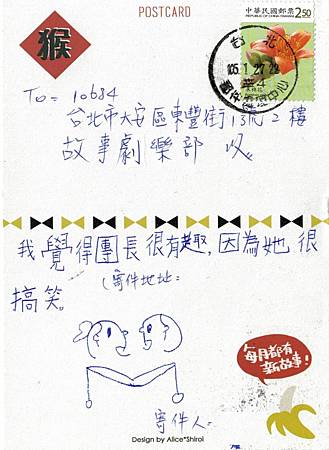 POSTCARD
猴
中華民國郵票
REPUBLIC OF CHINA (TAIWAN)
2.50
台北
105.1.27.22
To: 10684
台北市大安區東豐街13號2樓
故事劇樂部 收
我覺得團長很有趣,因為她很
搞笑。
(寄件地址:
每月都有
新故事!
寄件人:
Design by Alice*Shiroi